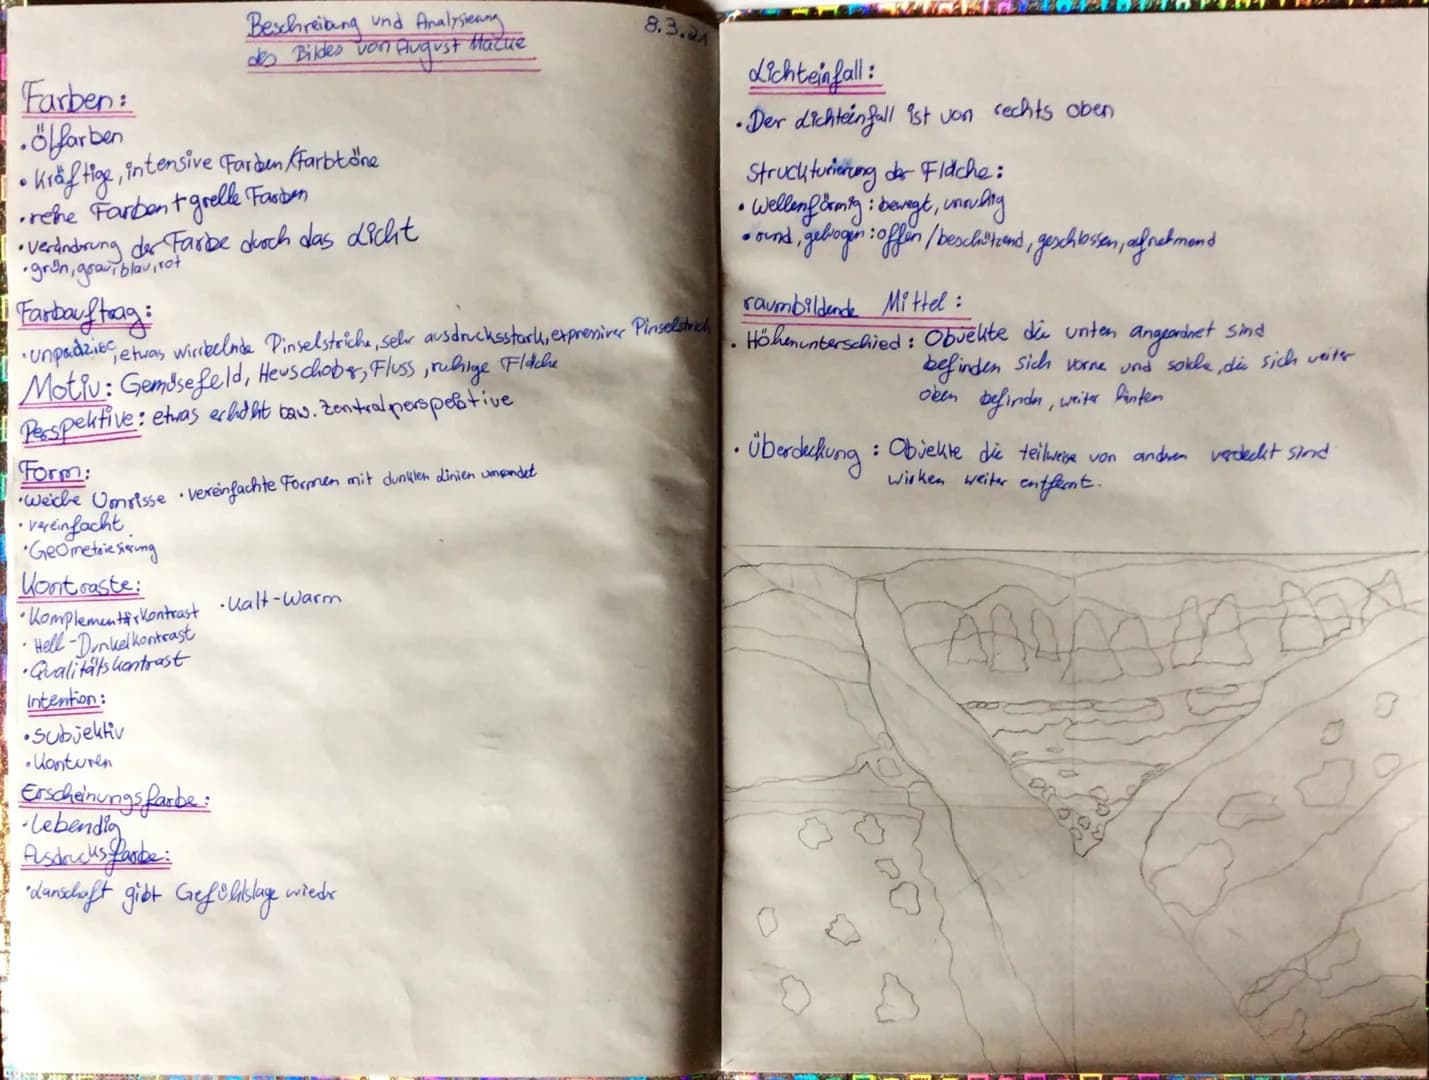 Beschreibung und Analysierung
des Bildes von August Macke
8.3.21
Farben:
• Ölfarben
• kräftige, intensive Farben/Farbtöne
• reine Farben + grelle Farben
• verändrung der Farbe durch das Licht
• grün, grau, blau, rot
Farbauftrag:
• unpräzise, etwas wirrbelnde Pinselstriche, sehr ausdrucksstark, expressiver Pinselstrich
Motiv: Gemüsefeld, Heuschober, Fluss, ruhige Fläche
Perspektive: etwas erhöht bzw. Zentralperspektive
Form:
• weiche Umrisse • vereinfachte Formen mit dunklen Linien umrandet
• vereinfacht
• Geometriesierung
Kontraste:
• Komplementärkontrast • Kalt-Warm
• Hell-Dunkelkontrast
• Qualitätskontrast
Intention:
• subjektiv
• Konturen
Erscheinungsfarbe:
• lebendig
Ausdrucksfarbe:
• Lanschaft gibt Gefühlslage wieder
Lichteinfall:
• Der Lichteinfall ist von rechts oben
Struckturierung der Fläche:
• Wellenförmig: bewegt, unruhig
• rund, gebogen: offen/beschützend, geschlossen, aufnehmend
raumbildende Mittel:
• Höhenunterschied: Objekte die unten angeordnet sind
befinden sich vorne und solche, die sich weiter
oben befinden, weiter hinten
• Überdeckung: Objekte die teilweise von andren verdeckt sind
wirken weiter entfernt.